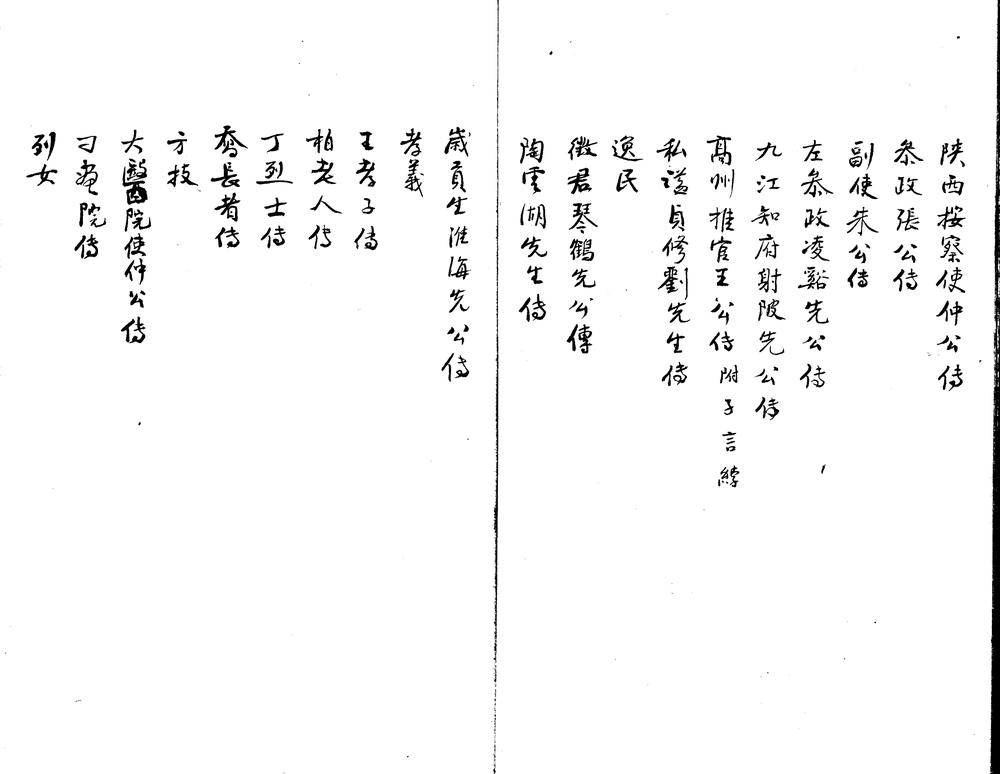 陕西按察使仲公傳
叅政張公傳
副使朱公傳
左叅政凌谿先公傳
九江知府射陂先公傳
高州推官王公傳 附子言緯
私謚貞修劉先生傳
逸民
徵君琴鶴先公傳
陶雲湖先生傳
歲貢生淮海先公傳
孝義
王孝子傳
柏老人傳
丁烈士傳
喬長者傳
方技
大醫院使仲公傳
刁畫院傳
列女